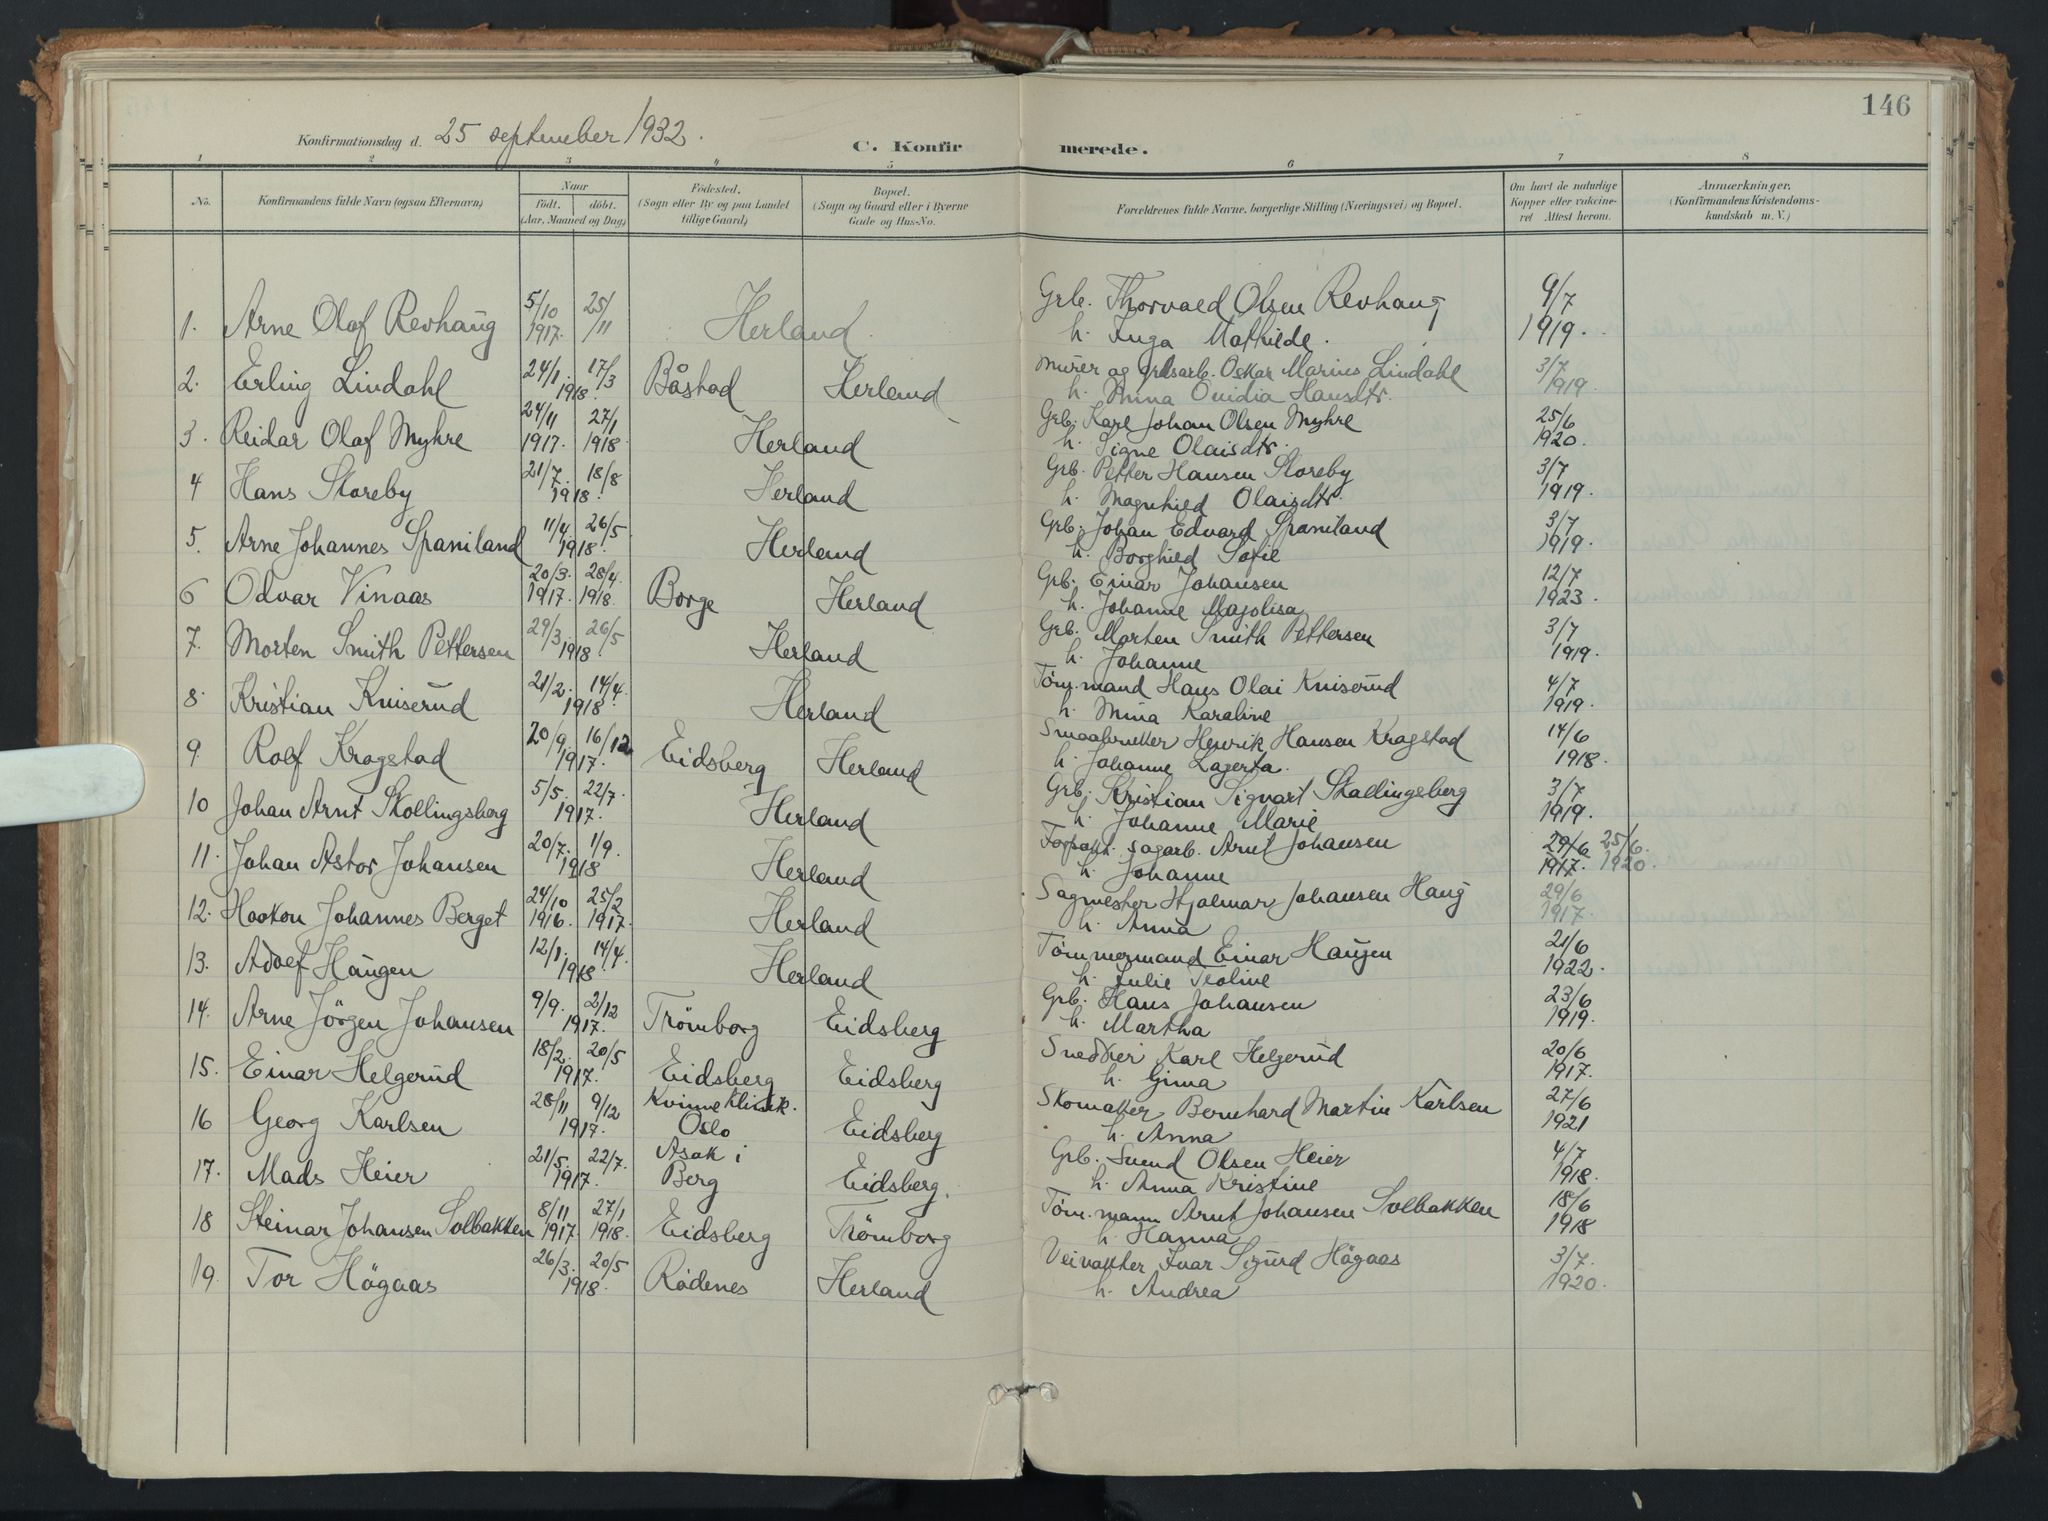 146
Konfirmationsdag d. 25 september 1932.
C. Konfirmerede.
1 2 3 4 5 6 7 8
No. Konfirmandens fulde Navn (ogsaa Efternavn) Naar Født. døbt. (Aar, Maaned og Dag) Fødested. (Sogn eller By og paa Landet tillige Gaard) Bopæl. (Sogn og Gaard eller i Byerne Gade og Hus-No. Forældrenes fulde Navne, borgerlige Stilling (Næringsvei) og Bopæl. Om havt de naturlige Kopper eller vaccineret Attest herom. Anmærkninger. (Konfirmandens Kristendomskundskab m. V.)
1. Arne Olaf Revhaug 5/10 1917. 25/11 Herland Grb. Thorvald Olsen Revhaug 9/7
h. Inga Mathilde. 1919.
2. Erling Lindahl 24/1. 17/3 1918. Båstad Herland Murer og grdsarb. Oskar Marius Lindahl 3/7
h. Mina Ovidia Hansdtr. 1919.
3. Reidar Olaf Myhre 24/11 1917. 27/1 1918. Herland Grb. Karl Johan Olsen Myhre 25/6
h. Signe Olaisdtr. 1920.
4 Hans Storeby 21/7. 18/8 1918. Herland Grb. Petter Hansen Storeby 3/7
h. Magnhild Olaisdtr. 1919.
5. Arne Johannes Spaniland 11/4. 26/5 1918. Herland Grb. Johan Edvard Spaniland 3/7
h. Borghild Sofie 1919.
6 Odvar Vinaas 20/3. 1917. 28/4. 1918. Borge Herland Grb. Einar Johansen 12/7
h. Johanne Majolisa 1923.
7. Morten Smith Pettersen 29/3. 26/5 1918. Herland Grb. Marten Smith Pettersen 3/7
h. Johanne 1919.
8. Kristian Kniserud 21/2. 14/4. 1918. Herland Tøm.mand Hans Olai Kniserud 4/7
h. Mina Karoline 1919.
9. Rolf Kragstad 20/9. 16/12 1917. Eidsberg Herland Smaabruker Henrik Hansen Kragstad 14/6
h. Johanne Lagerta. 1918.
10 Johan Arnt Skollingsberg 5/5. 22/7. 1917. Herland Grb. Kristian Sigvart Skallingsberg 3/7
h. Johanne Marie 1919.
11. Johan Astor Johansen 20/7. 1/9. 1918 Herland sagarb. Arnt Johansen 29/6 25/6.
h. Johanne 1917. 1920.
12. Haakon Johannes Berget 24/10 1916. 25/2 1917. Herland Sagmester Hjalmar Johansen Haug 29/6
h. Anna 1917.
13. Adolf Haugen 12/1. 14/4. 1918 Herland Tømmermand Einar Haugen 21/6
h. Julie Teoline 1922.
14. Arne Jörgen Johansen 9/9. 2/12 1917. Trömborg Eidsberg Grb. Hans Johansen 23/6
h. Martha 1919.
15. Einar Helgerud 18/2. 20/5 1917. Eidsberg Eidsberg Snedker Karl Helgerud 20/6
h. Gina 1917.
16 Georg Karlsen 28/11 9/12 1917. Kvinneklinik. Oslo Eidsberg Skomaker Bernhard Martin Karlsen 27/6
h. Anna 1921
17. Mads Heier 21/5. 22/7. 1917. Asak i Berg Eidsberg. Grb. Svend Olsen Heier 4/7
h. Anna Kristine 1918.
18 Steinar Johansen Solbakken 8/11 1917. 27/1 1918. Eidsberg Trömborg Töm.mann Arnt Johansen Solbakken 18/6
h. Hanna 1918
19. Tor Högaas 26/3. 20/5 1918. Rödenes Herland Veivokter Ivar Sigurd Högaas 3/7.
h. Andrea 1920.